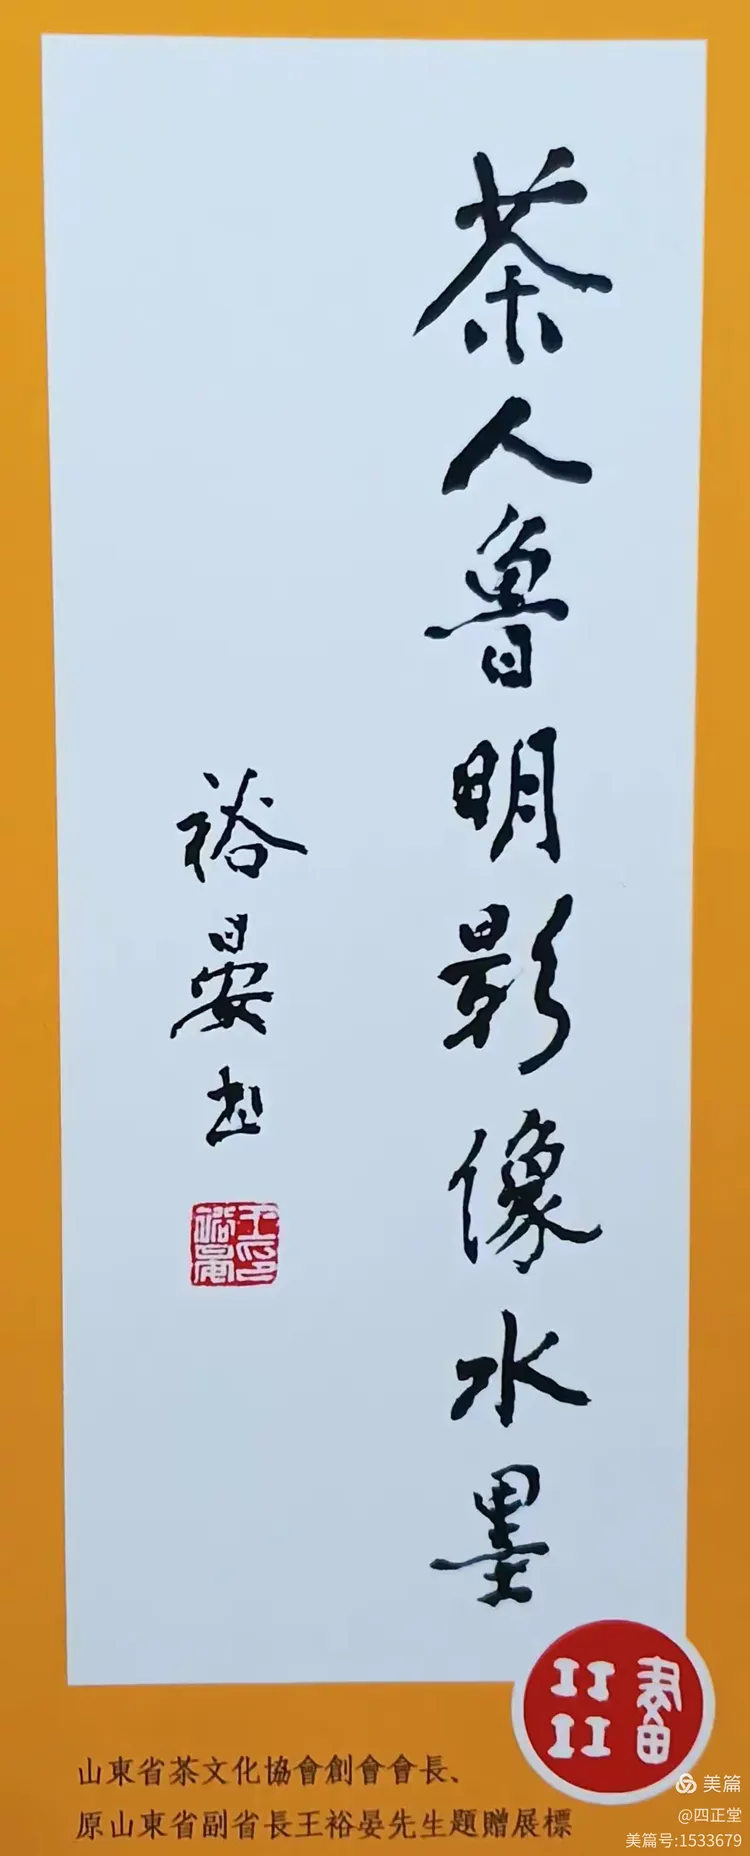 茶人魯明影像水墨
裕晏书
王印裕晏
山東省茶文化協會創會會長、
原山東省副省長王裕晏先生題贈展標
美篇
@四正堂
美篇号:1533679